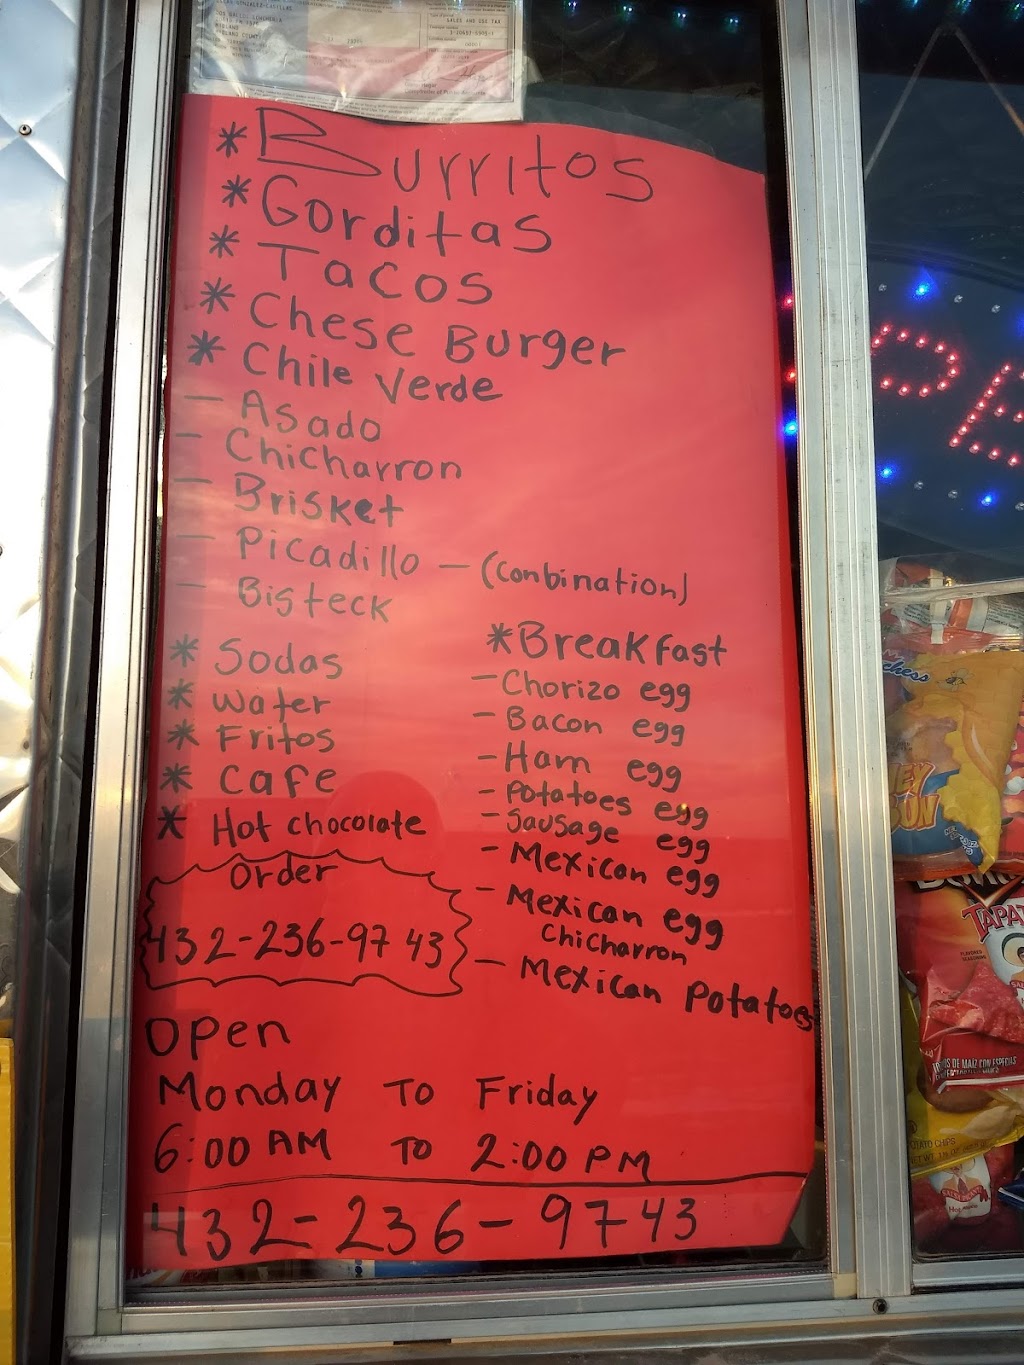 SALES AND USE TAX
* Burritos
* Gorditas
* Tacos
* Chese Burger
* Chile Verde
- Asado
- Chicharron
- Brisket
- Picadillo - (Conbination)
- Bisteck
* Sodas
* Water
* Fritos
* Cafe
* Hot chocolate
*Breakfast
- Chorizo egg
- Bacon egg
- Ham egg
- Potatoes egg
- Sausage egg
- Mexican egg
- Mexican egg
chicharron
- Mexican Potatoes
Order
432-236-9743
Open
Monday To Friday
6:00 AM To 2:00 PM
432-236-9743
TAPAT